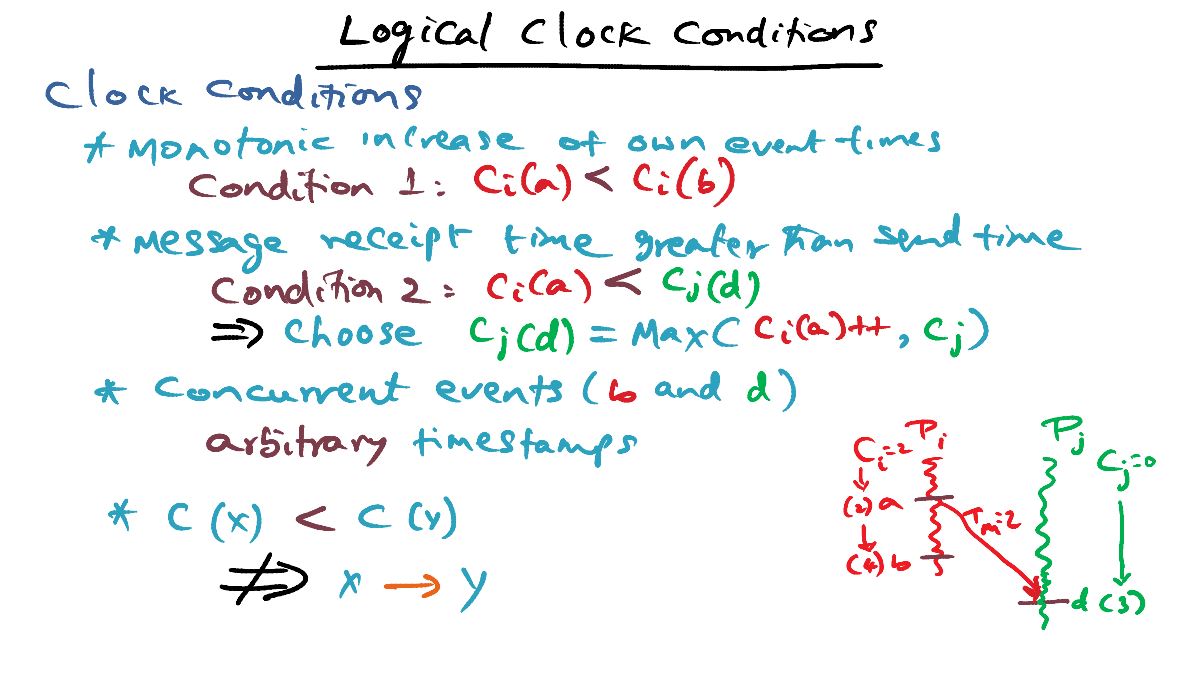 Logical Clock Conditions
Clock Conditions
* Monotonic increase of own event times
Condition 1: Ci(a) < Ci(b)
* Message receipt time greater than send time
Condition 2: Ci(a) < Cj(d)
⇒ Choose Cj(d) = Max( Ci(a)++, Cj)
* Concurrent events (b and d)
arbitrary timestamps
* C (x) < C (y)
⇏ x → y
Pi
Ci=2
↓
(2) a
↓
(4) b
Tm=2
Pj
Cj=0
↓
d (3)